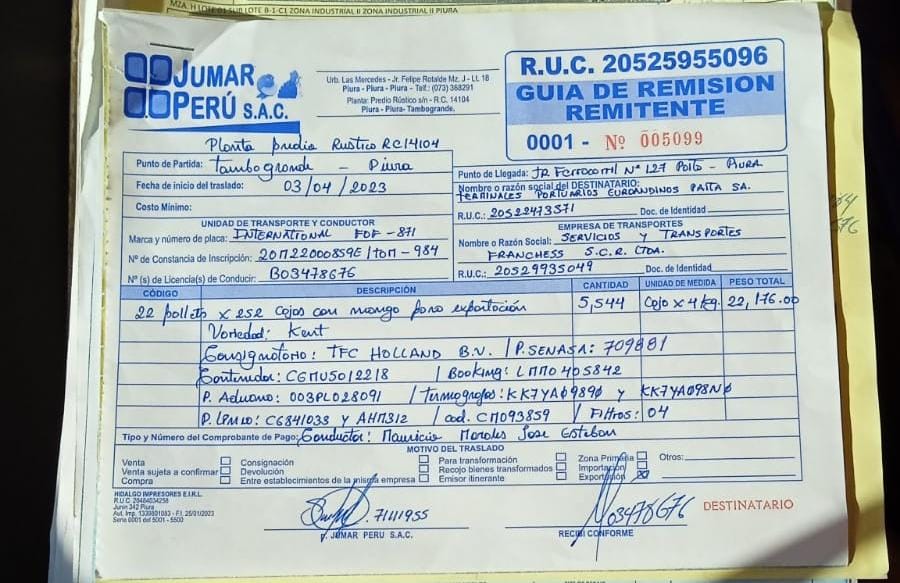 MZA. H LOTE 01 SUB LOTE B-1-C1 ZONA INDUSTRIAL II ZONA INDUSTRIAL II PIURA
JUMAR
PERÚ S.A.C.
Urb. Las Mercedes - Jr. Felipe Rotalde Mz. J - Lt. 18
Piura - Piura - Piura - Telf.: (073) 368291
Planta: Predio Rústico s/n - R.C. 14104
Piura - Piura - Tambogrande.
R.U.C. 20525955096
GUIA DE REMISION
REMITENTE
0001 - Nº 005099
Planta predio Rustico RC14104
Punto de Partida: Tambogrande - Piura
Fecha de inicio del traslado: 03/04/2023
Costo Mínimo:
Punto de Llegada: JR Ferrocarril Nº 127 Paita - Piura
Nombre o razón social del DESTINATARIO:
TERMINALES PORTUARIOS EUROANDINOS PAITA SA.
R.U.C.: 20522473571 Doc. de Identidad
UNIDAD DE TRANSPORTE Y CONDUCTOR
Marca y número de placa: INTERNATIONAL FOF-871
Nº de Constancia de Inscripción: 20M22000859E/TOM-984
Nº (s) de Licencia(s) de Conducir: B03478676
EMPRESA DE TRANSPORTES
Nombre o Razón Social: SERVICIOS Y TRANSPORTES
FRANCHESS S.C.R. LTDA.
R.U.C.: 20529935049 Doc. de Identidad
CÓDIGO DESCRIPCIÓN CANTIDAD UNIDAD DE MEDIDA PESO TOTAL
22 pallets x 252 Cajas con mango para exportación 5,544 Caja x 4kg. 22,176.00
Variedad: Kent
Consignatorio: TFC HOLLAND B.V. / P.SENASA: 709881
Contenedor: CGMU5012218 / Booking: LMM0405842
P. Aduana: 003PL028091 / Termografos: KK7YA09890 y KK7YA098N0
P. Linea: C6841033 y AHM312 / cod. CM093859 / Filtros: 04
Tipo y Número del Comprobante de Pago: Conductor: Mauricio Morales Jose Esteban
MOTIVO DEL TRASLADO
Venta Consignación Para transformación Zona Primaria Otros:
Venta sujeta a confirmar Devolución Recojo bienes transformados Importación
Compra Entre establecimientos de la misma empresa Emisor itinerante Exportación
HIDALGO IMPRESORES E.I.R.L.
R.U.C. 20484034258
Junin 342 Piura
Aut. Imp. 1339801083 - F.I. 25/01/2023
Serie 0001 del 5001 - 5500
71111955
p. JUMAR PERU S.A.C.
03478676
RECIBI CONFORME
DESTINATARIO